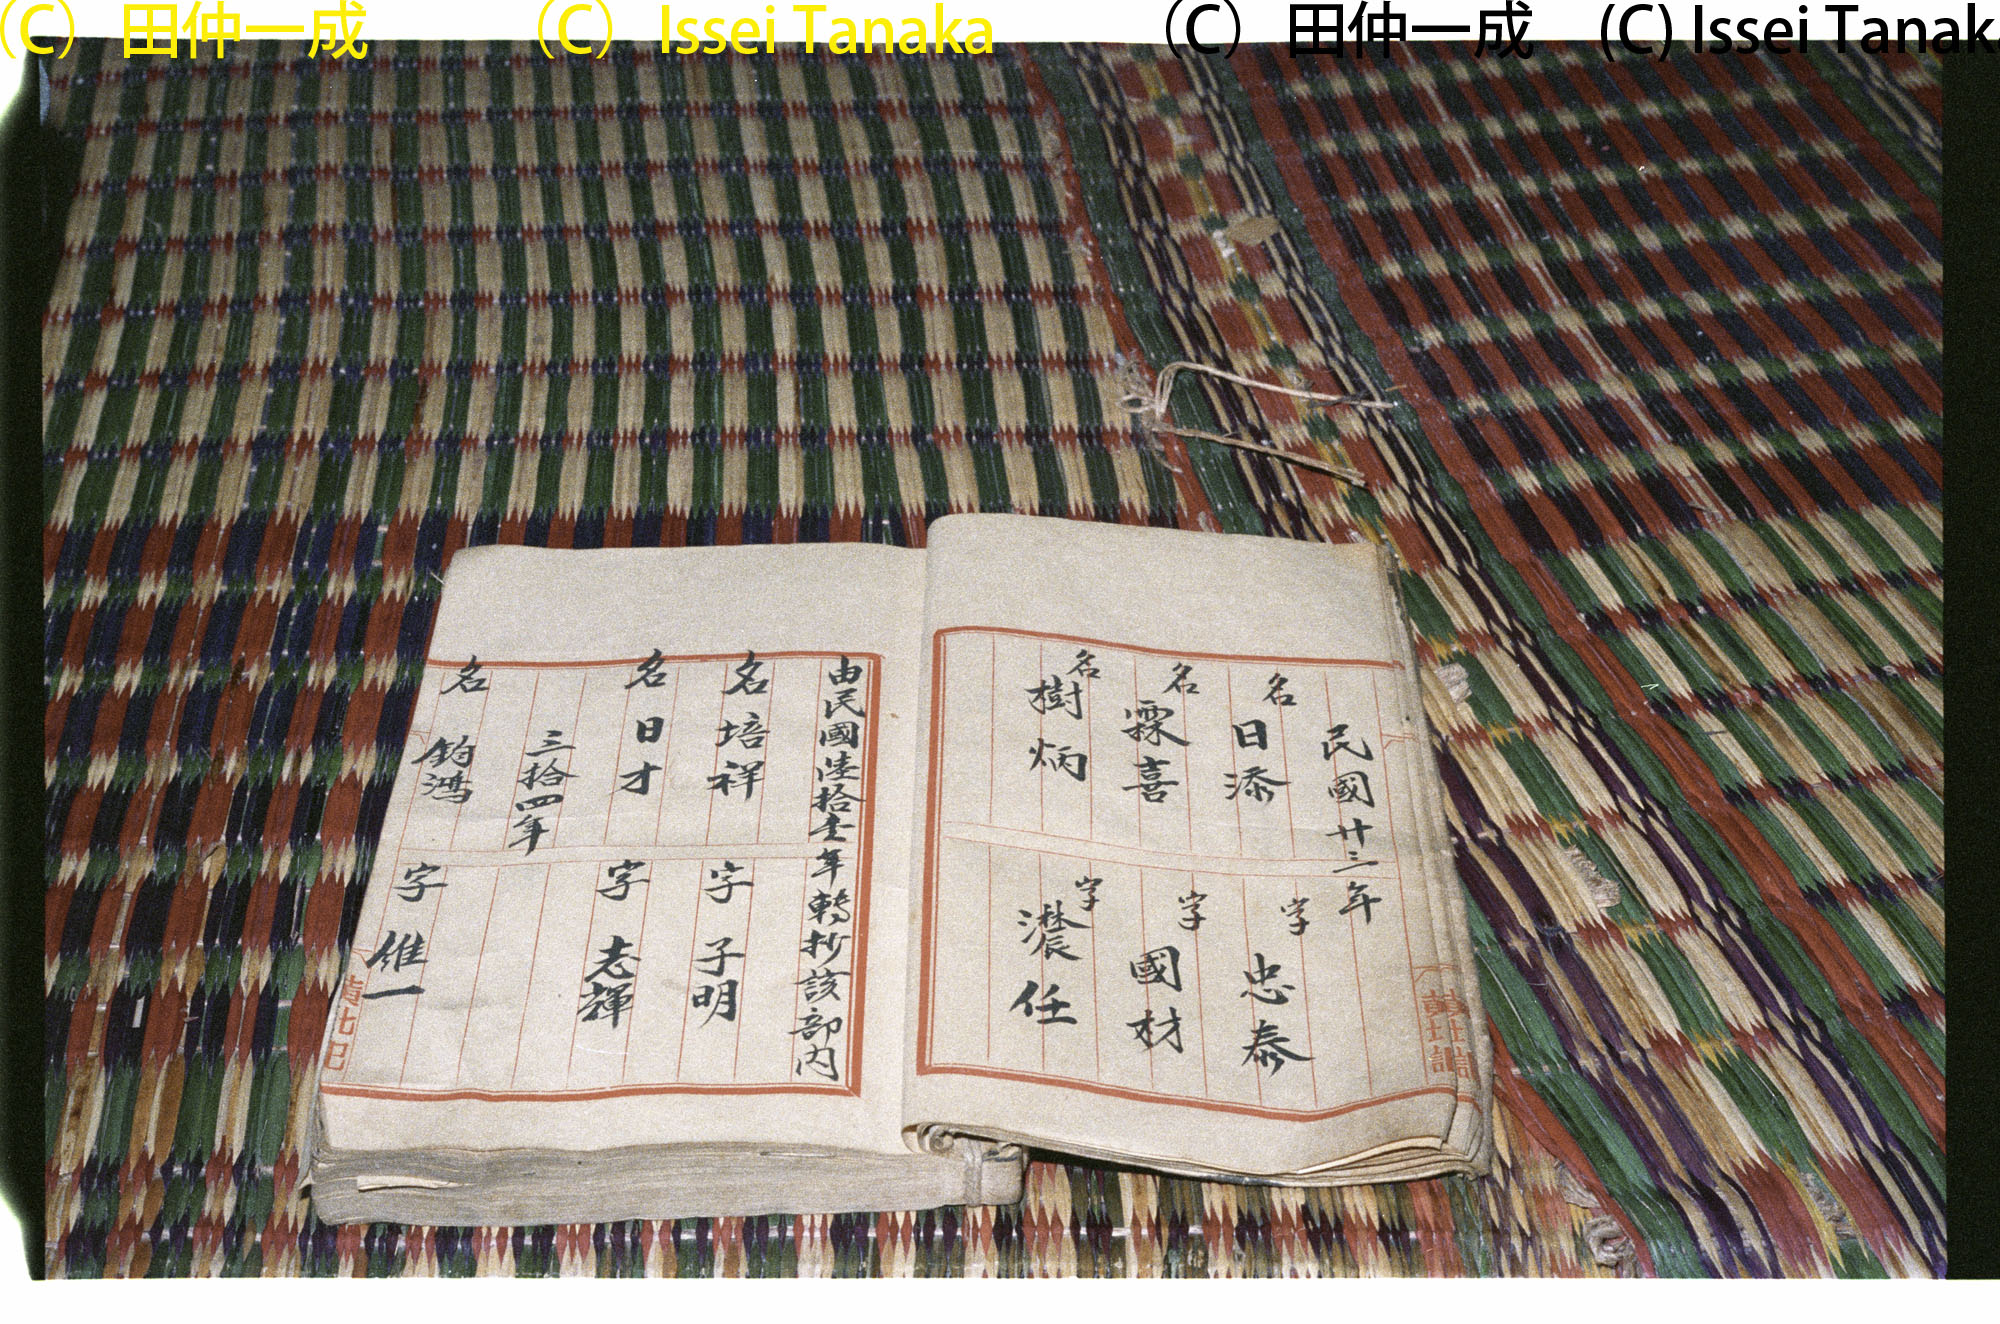 (C) 田仲一成 (C) Issei Tanaka (C) 田仲一成 (C) Issei Tanaka
民國廿三年
名 日添 字 忠泰
名 霖喜 字 國材
名 樹炳 字 濃任
由民國陸拾壹年轉抄該部内
名 培祥 字 子明
名 日才 字 志輝
三拾四年
名 鈞鴻 字 維一